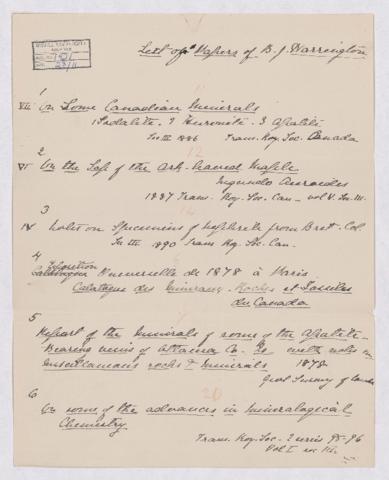 List of Papers of B. J. Harrington
11
1
VII On Some Canadian Minerals
1 Sodalite. 2 Huronite. 3 Apatite
Sec III 1886 Trans. Roy. Soc. Canada
12
2
VI On the Sap of the Ash-leaved Maple
Negundo Aceroides
1887 Trans. Roy. Soc. Can - vol V. Sec. III.
3
IV Notes on Specimens of Nephrite from Brit. Col.
Sec III 1890 Trans Roy. Soc. Can.
4
Exposition Universelle de 1878 à Paris
Catalogue des Mineraux, Roches et Fossiles
du Canada
5
Report of the Minerals of some of the Apatite-
Bearing veins of Ottawa Co. Q. with notes on
miscellaneous rocks & minerals 1878
Geol Survey of Canada
20
6
On some of the advances in Mineralogical
Chemistry.
Trans. Roy. Soc - 2 series 95-96
Vol I sec III.